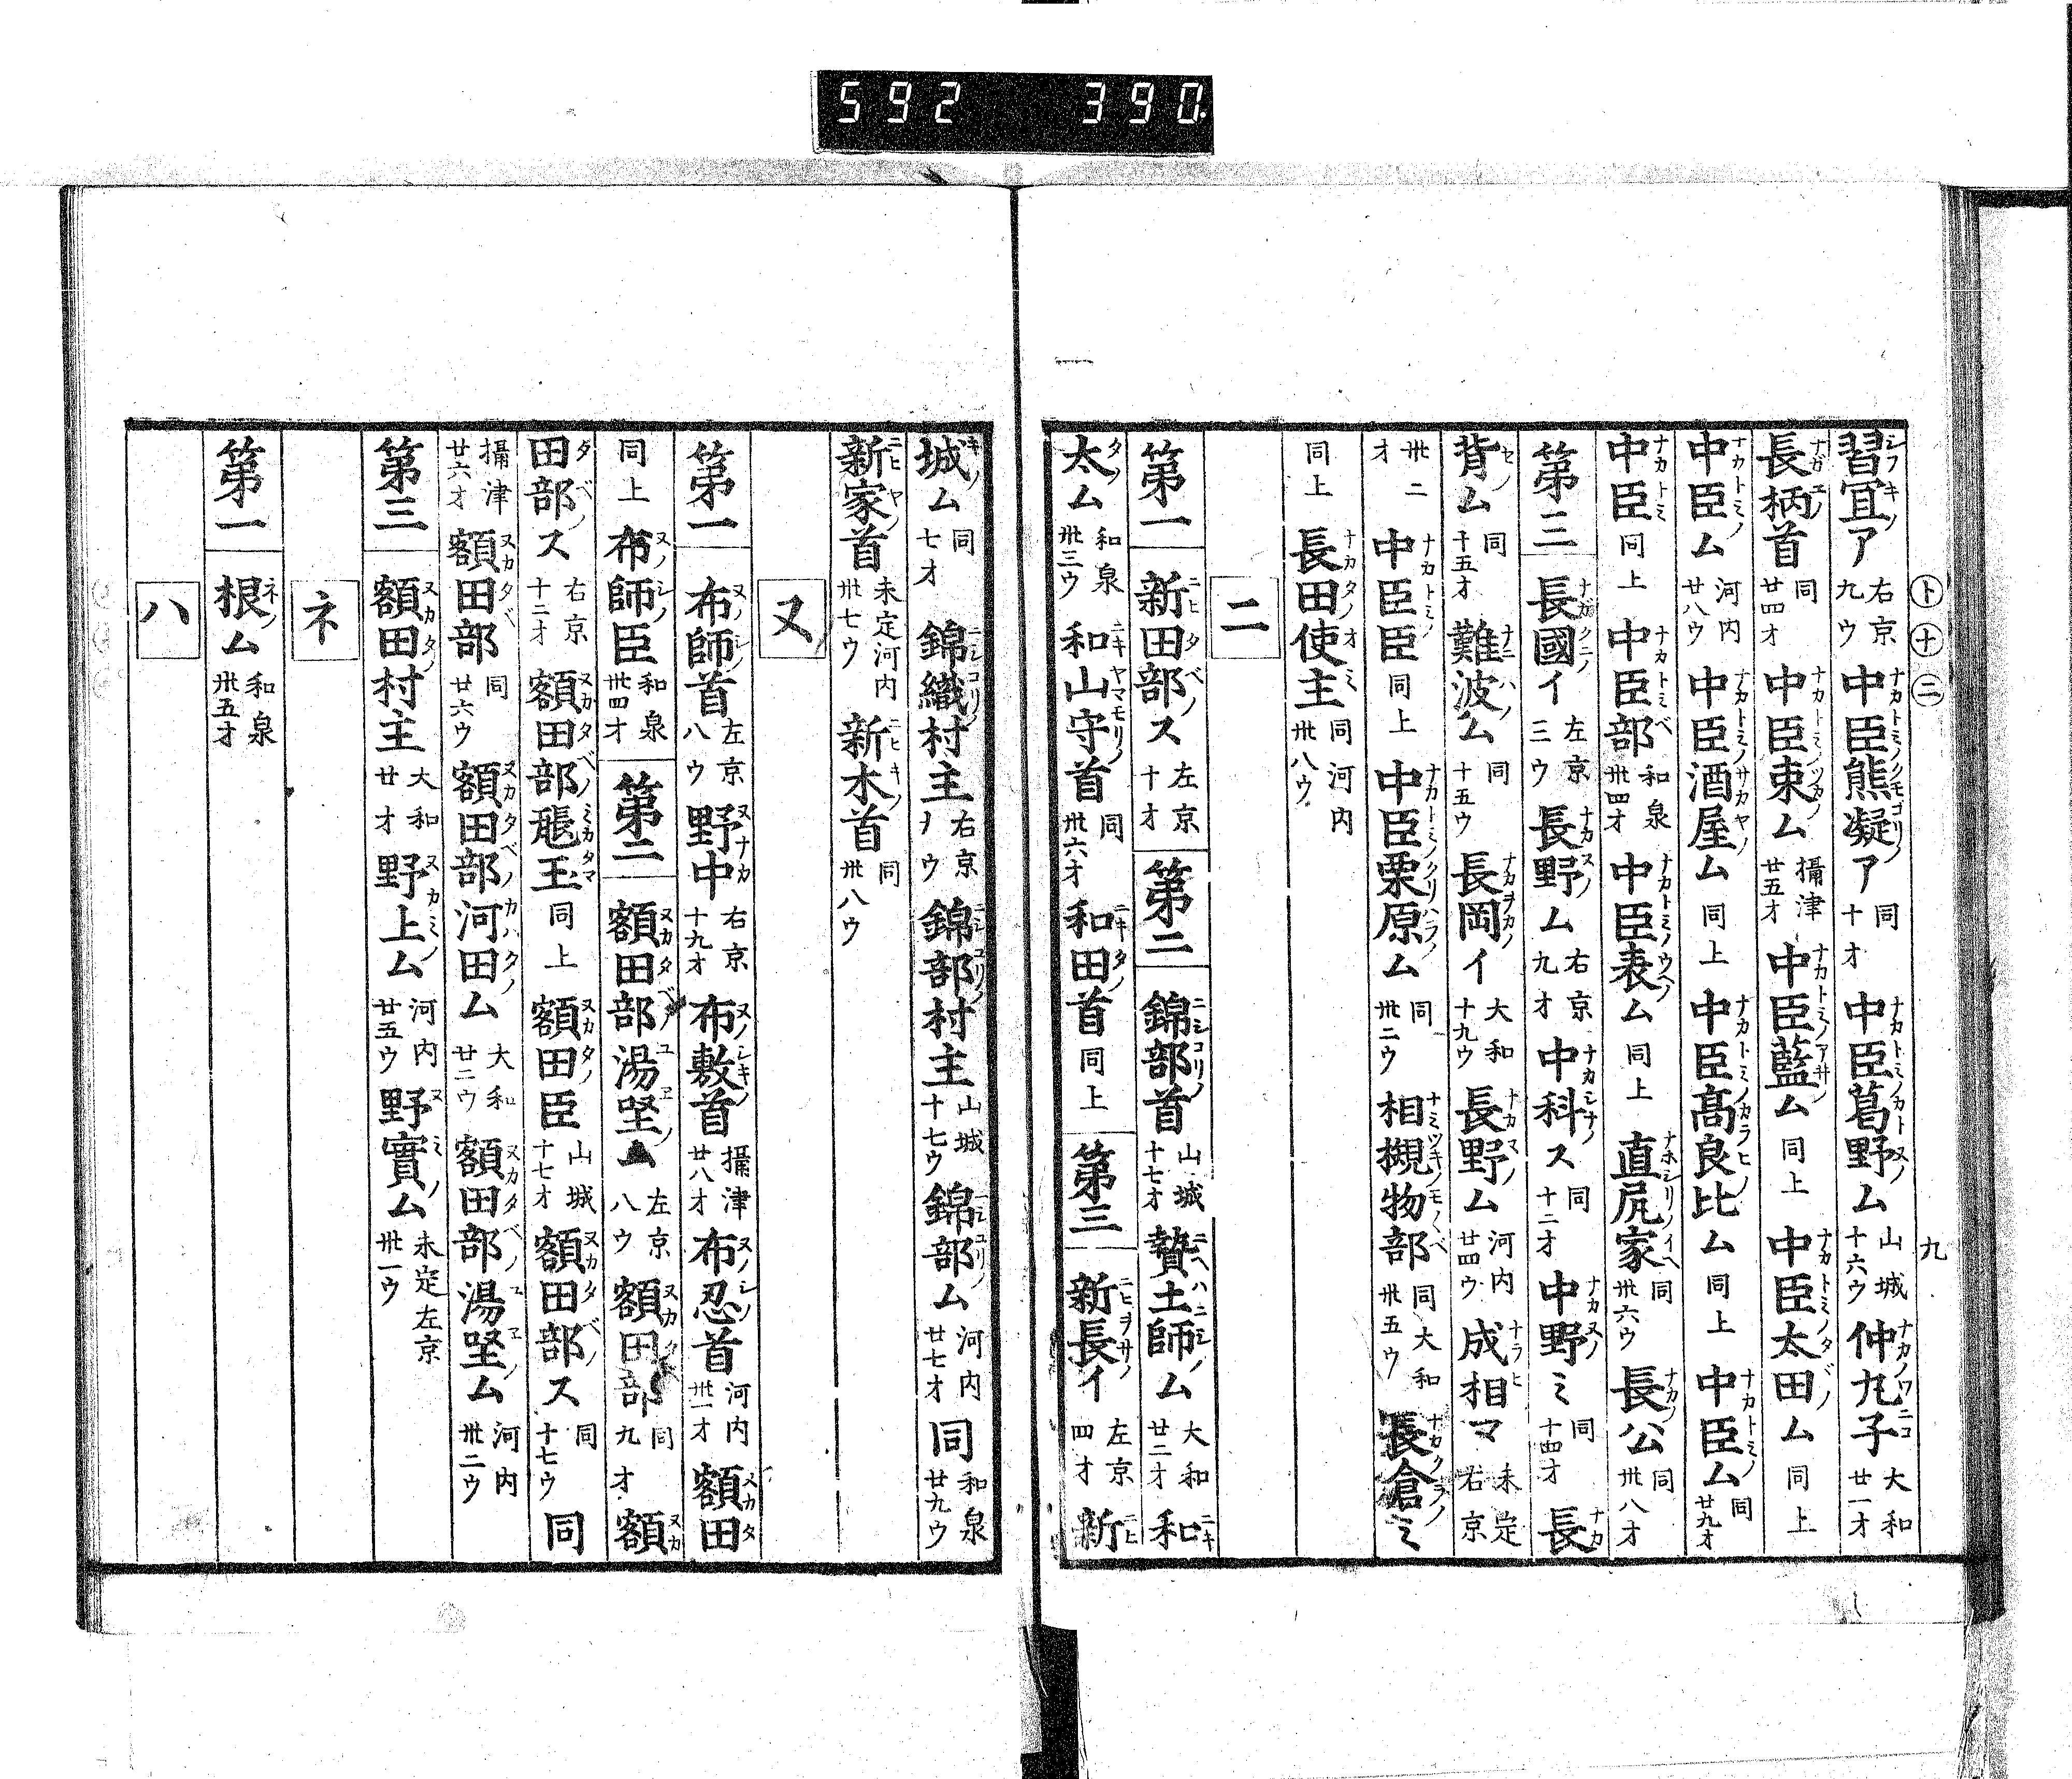 592 390
㋣㊉㊁ 九
習宜ア 右京九ウ 中臣熊凝ア 同十オ 中臣葛野ム 山城十六ウ 仲丸子 大和廿一オ
長柄首 同廿四オ 中臣束ム 攝津廿五オ 中臣藍ム 同上 中臣太田ム 同上
中臣ム 河内廿八ウ 中臣酒屋ム 同上 中臣高良比ム 同上 中臣ム 同廿九オ
中臣 同上 中臣部 和泉卅四オ 中臣表ム 同上 直尻家 同卅六ウ 長公 同卅八オ
第三 長國イ 左京三ウ 長野ム 右京九オ 中科ス 同十二オ 中野ミ 同十四オ 長
背ム 同十五オ 難波ム 同十五ウ 長岡イ 大和十九ウ 長野ム 河内廿四ウ 成相マ 未定右京
卅二オ 中臣臣 同上 中臣栗原ム 同卅二ウ 相槻物部 同大和卅五ウ 長倉ミ
同上 長田使主 同河内卅八ウ
ニ
第一 新田部ス 左京十オ 第二 錦部首 山城十七オ 贄土師ム 大和廿二オ 和
太ム 和泉卅三ウ 和山守首 同卅六オ 和田首 同上 第三 新長イ 左京四オ 新
城ム 同七オ 錦織村主 右京ウ 錦部村主 山城十七ウ 錦部ム 河内廿七オ 同 和泉廿九ウ
新家首 未定河内卅七ウ 新木首 同卅八ウ
ヌ
第一 布師首 左京八ウ 野中 右京十九オ 布敷首 攝津廿八オ 布忍首 河内卅一オ 額田
同上 布師臣 和泉卅四オ 第二 額田部湯坐ム 左京八ウ 額田部 同九オ 額
田部ス 右京十二オ 額田部玉 同上 額田臣 山城十七オ 額田部ス 同十七ウ 同
攝津廿六オ 額田部 同廿六ウ 額田部河田ム 大和廿二ウ 額田部湯坐ム 河内卅二ウ
第三 額田村主 大和廿オ 野上ム 河内廿五ウ 野實ム 未定左京卅一ウ
ネ
第一 根ム 和泉卅五オ
ハ